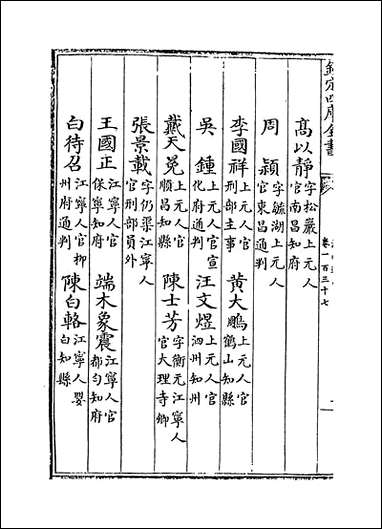 欽定四庫全書
卷一百三十七
高以靜字松巖上元人官南昌知府
周潁字毓湖上元人官東昌通判
李國祥上元人官刑部主事 黃大鵬上元人官鶴山知縣
吳鍾上元人官宣化府通判 汪文煜上元人官泗州知州
戴天堯上元人官順昌知縣 陳士芳字衡元江寧人官大理寺卿
張景載字仍渠江寧人官刑部員外
王國正江寧人官保寧知府 端木象震江寧人官都勻知府
白待召江寧人官柳州府通判 陳白輅江寧人嬰白知縣